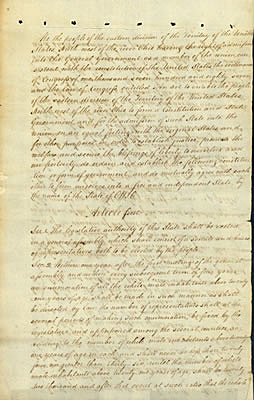 We the people of the eastern division of the Territory of the United
States North west of the river Ohio having the right of admission
into the General Government as a member of the union, con-
sistent with the constitution of the United States the Ordinance
of Congress of one thousand seven hundred and eighty seven
and the law of Congress entitled An act to enable the people
of the eastern division of the Territory of the United States
North west of the river Ohio to form a Constitution and State
Government and for the admission of such State into the
union on an equal footing with the original States and
for other purposes, in order to establish justice, promote the
welfare and secure the blessings of liberty to ourselves and
our posterity do ordain and establish the following constitu-
tion or form of government, and do mutually agree with each
other to form ourselves into a free and independent State by
the name of the State of Ohio
Article first
Sec 1 The legislative authority of this State shall be vested
in a general assembly which shall consist of a senate and house
of representatives both to be elected by the people
Sec 2 Within one year after the first meeting of the general
assembly and within every subsequent term of four years
an enumeration of all the white male inhabitants above twenty
one years of age shall be made in such manner as shall
be directed by law the number of representatives shall at the
several periods of making such enumeration be fixed by the
legislature and apportioned among the several counties ac-
cording to the number of white male inhabitants above twenty
one years of age in each and shall never be less than twenty
four nor greater than thirty six until the number of white
male inhabitants above twenty one years of age shall be twenty
two thousand and after that event at such ratio that the whole